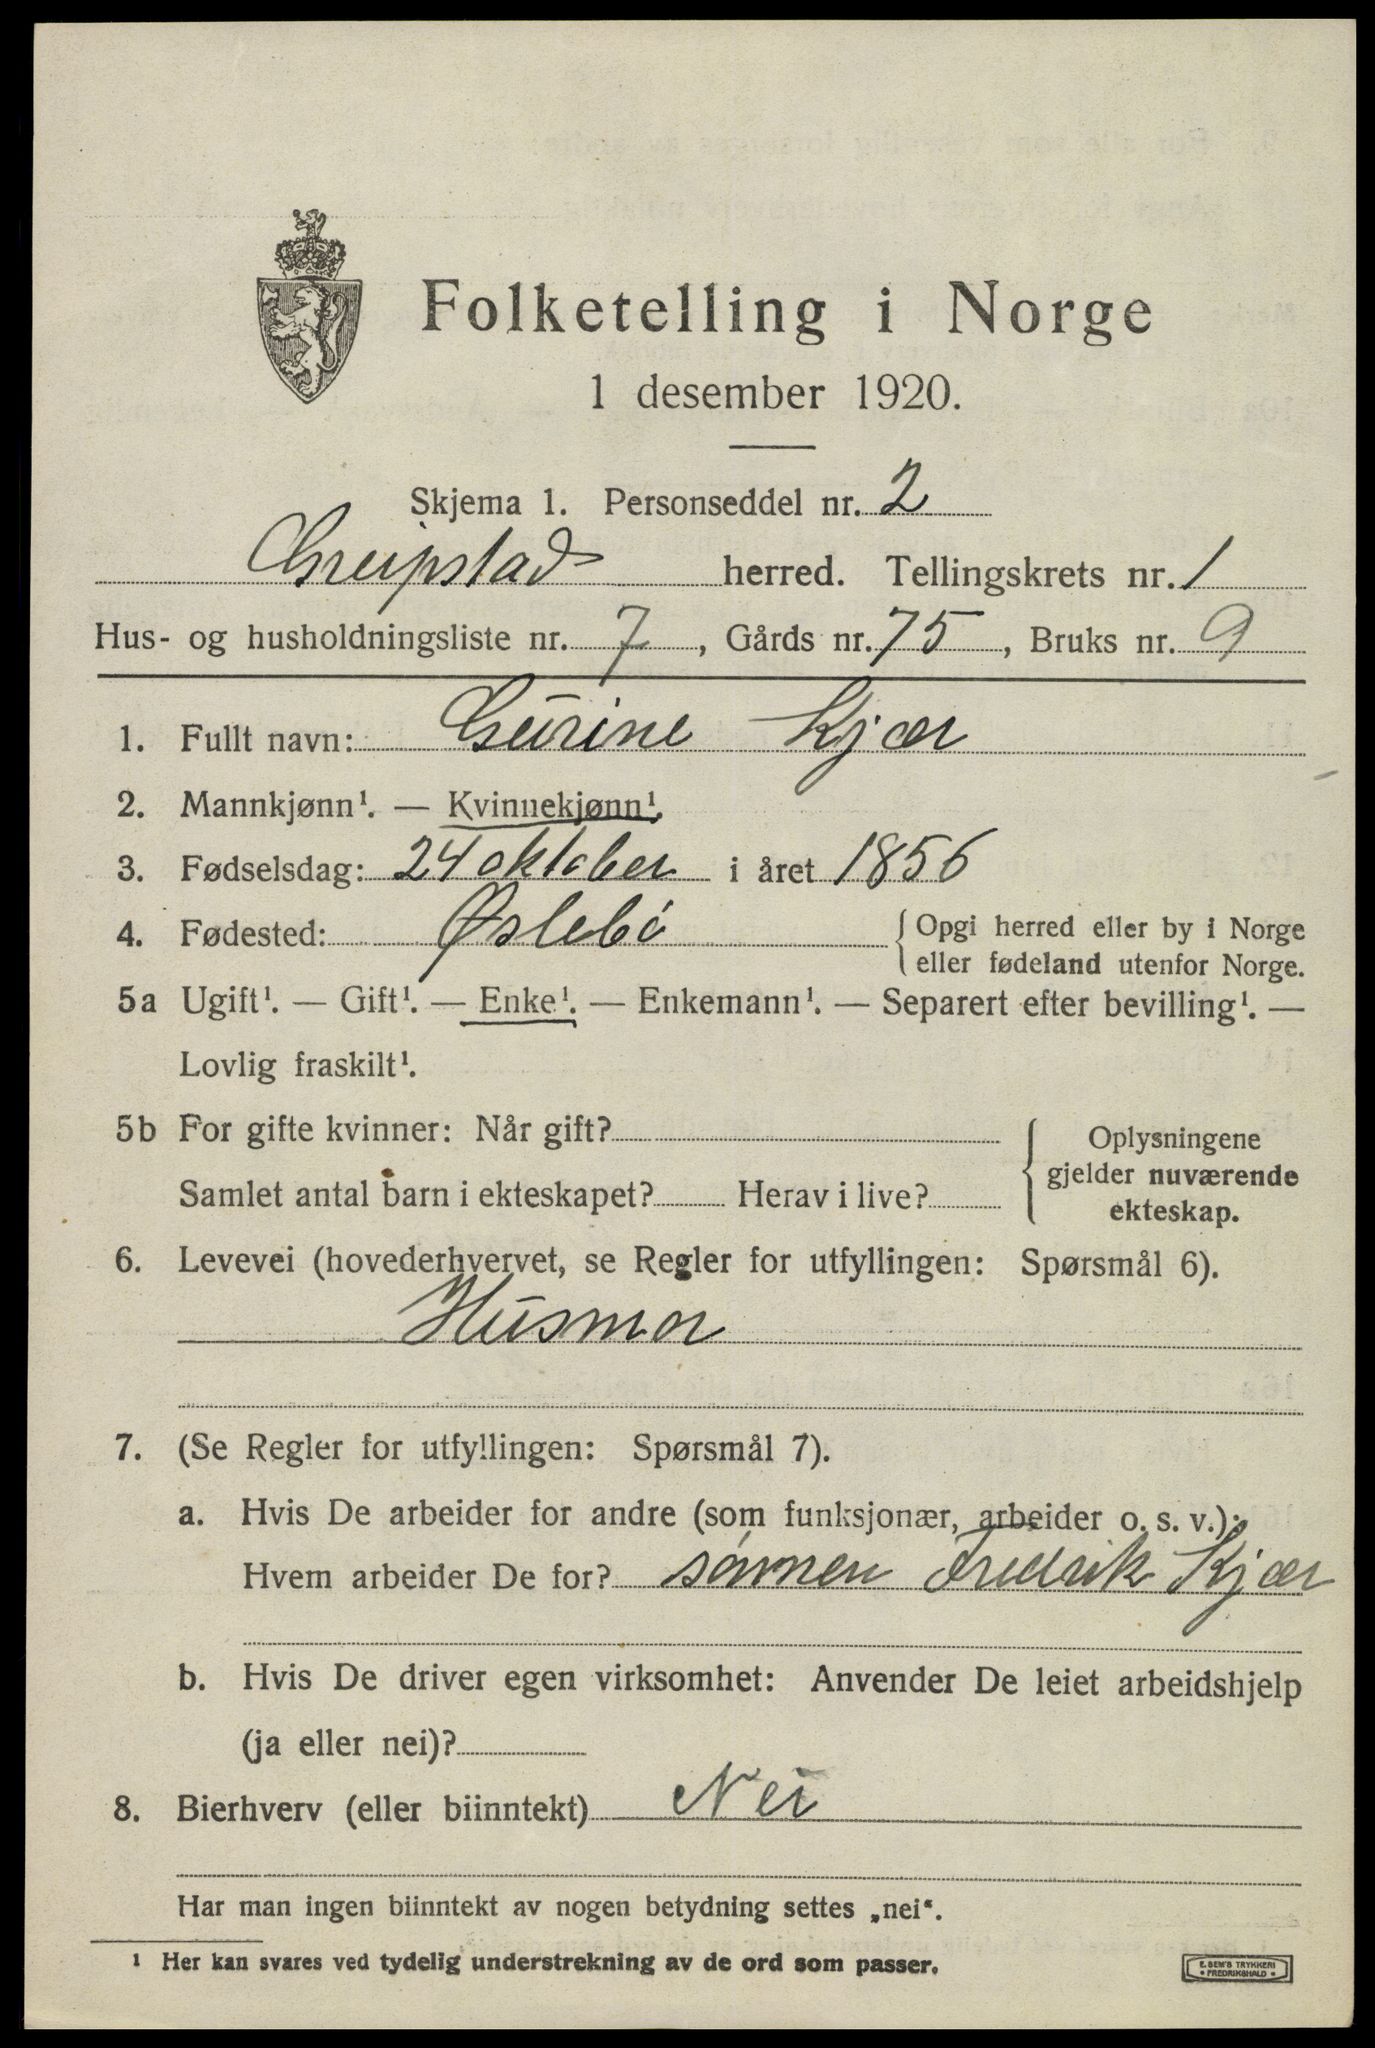 Folketelling i Norge
1 desember 1920.
Skjema 1. Personseddel nr. 2
Greipstad herred. Tellingskrets nr. 1
Hus- og husholdningsliste nr. 7, Gårds nr. 75, Bruks nr. 9
1. Fullt navn: Gurine Kjær
2. Mannkjønn¹. — Kvinnekjønn¹.
3. Fødselsdag: 24 oktober i året 1856
4. Fødested: Øslebó { Opgi herred eller by i Norge
eller fødeland utenfor Norge.
5a Ugift¹. — Gift¹. — Enke¹. — Enkemann¹. — Separert efter bevilling¹. —
Lovlig fraskilt¹.
5b For gifte kvinner: Når gift?
Samlet antal barn i ekteskapet? Herav i live?
{ Oplysningene
gjelder nuværende
ekteskap.
6. Levevei (hovederhvervet, se Regler for utfyllingen: Spørsmål 6).
Husmor
7. (Se Regler for utfyllingen: Spørsmål 7).
a. Hvis De arbeider for andre (som funksjonær, arbeider o. s. v.):
Hvem arbeider De for? sónnen Fredrik Kjær
b. Hvis De driver egen virksomhet: Anvender De leiet arbeidshjelp
(ja eller nei)?
8. Bierhverv (eller biinntekt) Nei
Har man ingen biinntekt av nogen betydning settes „nei“.
¹ Her kan svares ved tydelig understrekning av de ord som passer.
E. SEM'S TRYKKERI
• FREDRIKSHALD •